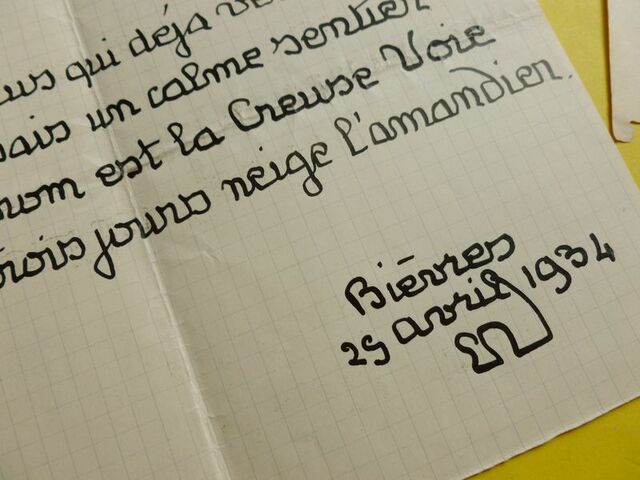 qui déjà
sais un calme sentier
nom est la Creuse Voie
trois jours neige l'amandier.
Bièvres
25 avril 1934